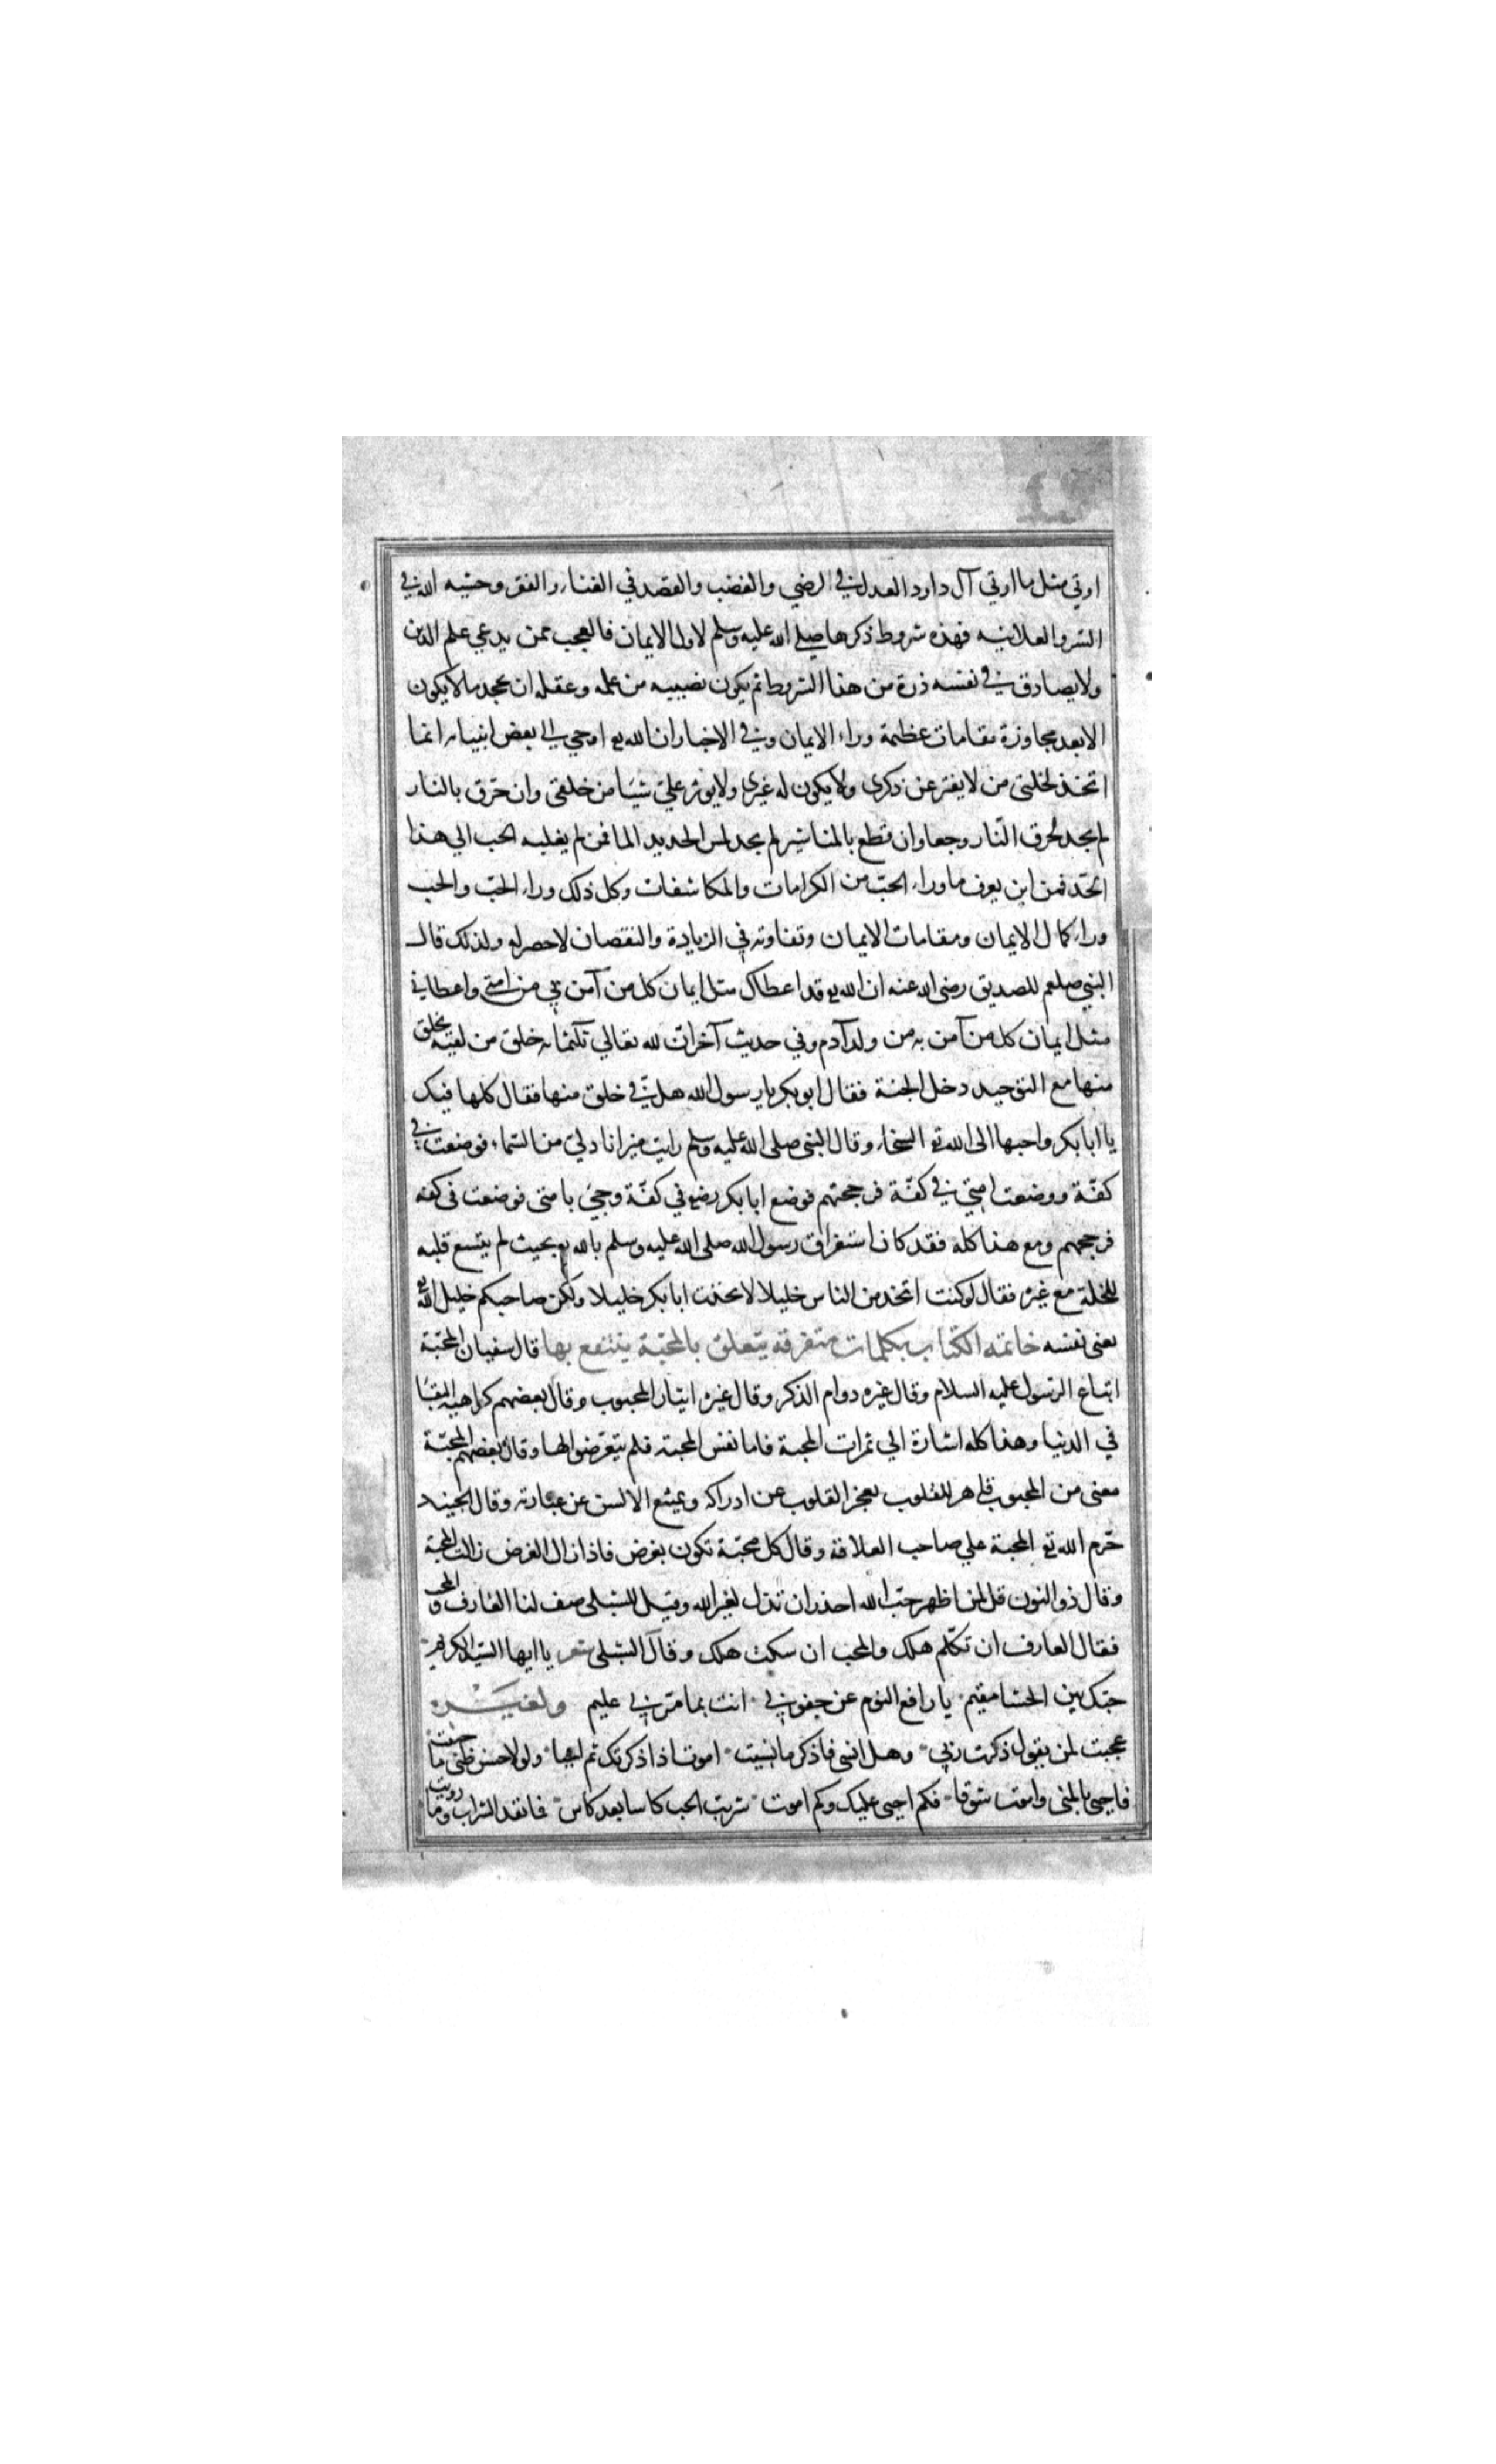 اوتي مثل ما اوتي آل داود العدل في الرضي والغضب والقصد في الغناء والفقر وخشيه الله في
السر والعلانيه فهذه شروط ذكرها صلى الله عليه وسلم لاولى الايمان فالعجب ممن يدعي علم الدين
ولا يصادق في نفسه ذرة من هذا الشروط ثم يكون نصيبه من علمه وعقله ان يجحد ما لا يكون
الا بعد مجاوزة مقامات عظيمة وراء الايمان وفي الاخبار ان الله تع اوحي الي بعض انبيائه انما
اتخذ لخلتي من لا يفتر عن ذكرى ولا يكون له غيرى ولا يوثر علي شيئا من خلقي وان حرق بالنار
لم يجد لحرق النار وجعا وان قطع بالمناشير لم يجد لمس الحديد الما فمن لم يغلبه الحب الي هذا
الحد فمن اين يعرف ما وراء الحب من الكرامات والمكاشفات وكل ذلك وراء الحب والحب
وراء كمال الايمان ومقامات الايمان وتفاوته في الزيادة والنقصان لا حصر له ولذلك قال
النبي صلعم للصديق رضى الله عنه ان الله تع قد اعطاك مثل ايمان كل من آمن بي من امتي واعطاني
مثل ايمان كل من آمن به من ولد آدم وفي حديث آخر ان لله تعالي ثلثمائه خلق من لقيه بخلق
منها مع التوحيد دخل الجنة فقال ابوبكر يا رسول الله هل في خلق منها فقال كلها فيك
يا ابا بكر واحبها الى الله تع السخاء وقال النبي صلى الله عليه وسلم رايت ميزانا دلي من السماء فوضعت في
كفة ووضعت امتي في كفة فرجحتهم فوضع ابا بكر رضع في كفة وجيئ بامتي فوضعت في كفه
فرجحهم ومع هذا كله فقد كان استغراق رسول الله صلى الله عليه وسلم بالله تع بحيث لم يتسع قلبه
للخلة مع غيره فقال لو كنت اتخذ من الناس خليلا لاتخذت ابا بكر خليلا ولكن صاحبكم خليل الله تع
يعني نفسه خاتمه الكتاب بكلمات متفرقه يتعلق بالمحبة ينتفع بها قال سفيان المحبة
اتباع الرسول عليه السلام وقال غيره دوام الذكر وقال غيره ايثار المحبوب وقال بعضهم كراهيه البقاء
في الدنيا وهذا كله اشارة الي ثمرات المحبة فاما نفس المحبة فلم يتعرضوا لها وقال بعضهم المحبة
معنى من المحبوب قاهر للقلوب يعجز القلوب عن ادراكه ويمتنع الالسن عن عبارته وقال الجنيد
حرم الله تع المحبة علي صاحب العلاقة وقال كل محبة تكون بغرض فاذا زال الغرض زالت المحبة
وقال ذو النون قل لمن اظهر حب الله احذر ان تذل لغير الله وقيل للشبلى صف لنا العارف والمحب
فقال العارف ان تكلم هلك والمحب ان سكت هلك وقال الشبلى شعر يا ايها السيد الكريم
حبك بين الحشا مقيم يا رافع النوم عن جفوني انت بما مر بي عليم ولغيره
عجبت لمن يقول ذكرت ربي وهل انسى فاذكر ما نسيت اموت اذا ذكرتك ثم احيا ولولا حسن ظنى ما حييت
فاحيى بالمنى واموت شوقا فكم احيى عليك وكم اموت شربت الحب كاسا بعد كاس فما نفد الشراب وما رويت